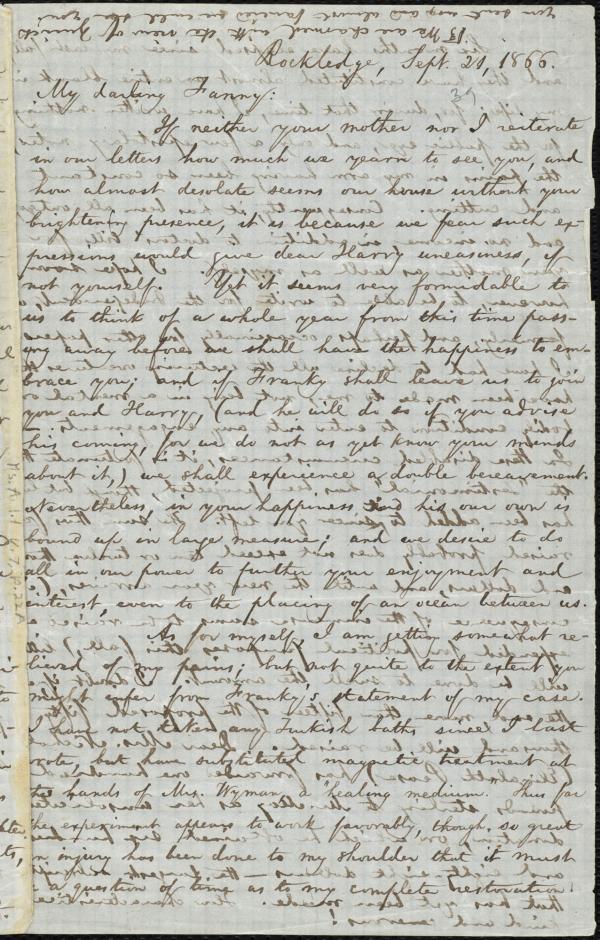 you sent us, and almost fancied we could see you
13. We are charmed with the view of Zurich
Rockledge, Sept. 21, 1866.
39
My darling Fanny:
If neither your mother nor I reiterate
in our letters how much we yearn to see you, and
how almost desolate seems our house without your
brightening presence, it is because we fear such ex-
pressions would give dear Harry uneasiness, if
not yourself. Yet it seems very formidable to
us to think of a whole year from this time pass-
ing away before we shall have the happiness to em-
brace you; and if Franky shall leave us to join
you and Harry, (and he will do so if you advise
his coming, for we do not as yet know your minds
about it,) we shall experience a double bereavement.
Nevertheless, in your happiness and his our own is
bound up in large measure; and we desire to do
all in our power to further your enjoyment and
interest, even to the placing of an ocean between us.
As for myself, I am getting somewhat re-
lieved of my pains; but not quite to the extent you
might infer from Franky's statement of my case.
I have not taken any Turkish baths since I last
wrote, but have substituted magnetic treatment at
the hands of Mrs. Wyman, a healing medium. Thus far
the experiment appears to work favorably, though so great
an injury has been done to my shoulder that it must
be a question of time as to my complete restoration.